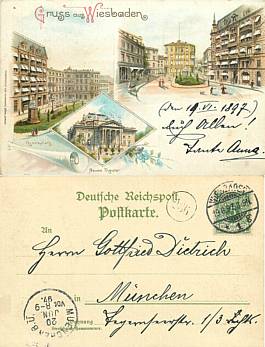 Gruss aus Wiesbaden
(den 19. VI. 1897.)
Euch Allen!
Tante Anna.
Neues Theater
Deutsche Reichspost
Postkarte.
An Herrn Gottfried Dietrich
in München
Tegernseerstr. 1/3
MUENCHEN
20
JUN
97